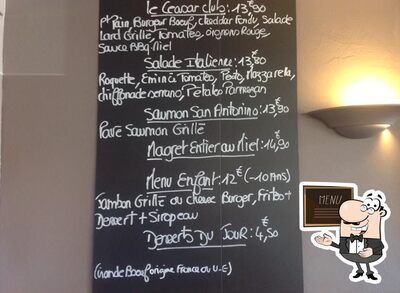 Le Ceasar club: 13,90
Pt Pain, Burger Boeuf, cheddar fondu, Salade
Lard Grillé, Tomates, oignons Rouge,
Sauce BBq Miel
Salade Italienne: 13,90
Roquette, Emincé Tomates, Pesto, Mozzarella,
chiffonade serrano, Petales Parmesan
Saumon San Antonino: 13,90
Pavé Saumon Grillé
Magret Entier au Miel: 14,90
Menu Enfant: 12€ (-10 Ans)
Jambon Grillé ou cheese Burger, Frites +
Dessert + Siropeau
Desserts Du Jour: 4,50€
(Viande Boeuf origine France ou U.E)
MENU